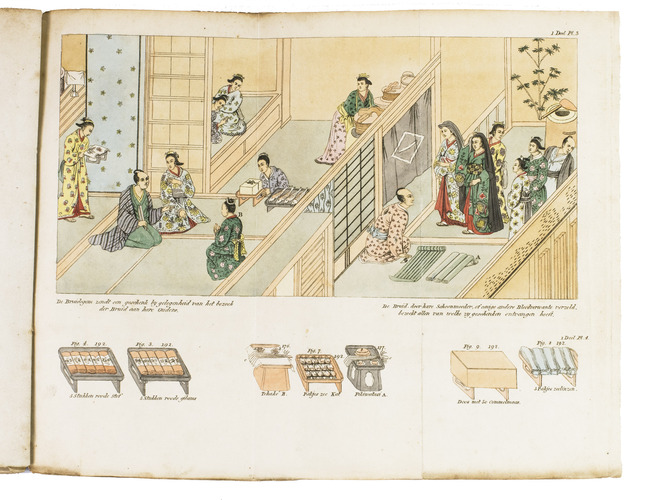 1 Deel Pl. 3
B
De Bruidegom zendt een geschenk by gelegenheid van het bezoek
der Bruid aan hare Ouders.
De Bruid door hare Schoonmoeder, of eenige andere Bloedverwante verzeld,
bezoekt allen van welke zy geschenken ontvangen heeft.
1 Deel Pl. 4
Fig. 6. 192.
Fig. 5. 192.
5 Stukken roode Stof
5 Stukken roode
B.
Fig. 7.
192.
A.
Fig. 9. 192.
Doos met
Fig. 8 192.
5